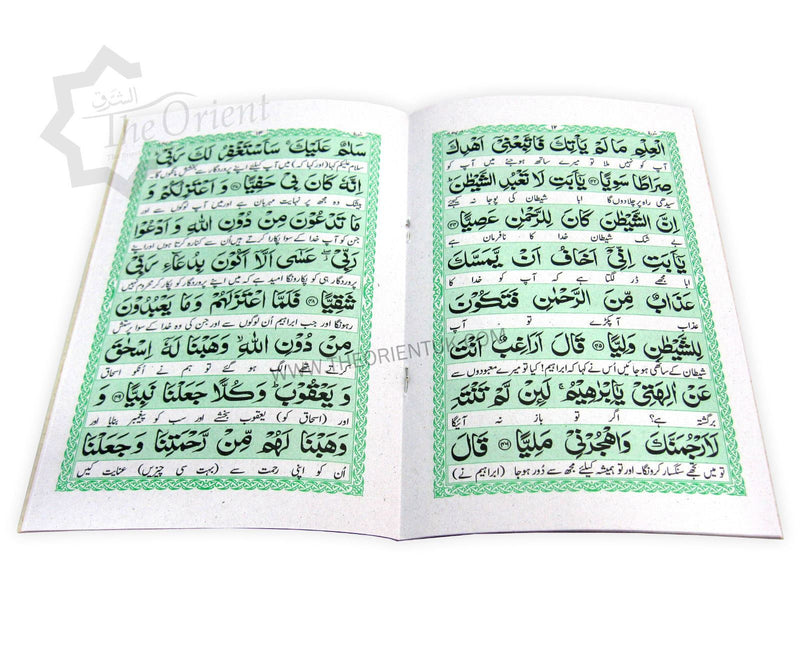 الشرق
The Orient
WWW.THEORIENTUK.COM
۱۲
الْعِلْمِ مَا لَمْ يَأْتِكَ فَاتَّبِعْنِيْٓ اَهْدِكَ
آپ کو نہیں ملا تو میرے ساتھ ہوجئے میں آپ کو
صِرَاطًا سَوِيًّا ۴۳ يٰٓاَبَتِ لَا تَعْبُدِ الشَّيْطٰنَ ؕ
سیدھی راہ پر چلادوں گا ابا شیطان کی پوجا نہ کیجئے
اِنَّ الشَّيْطٰنَ كَانَ لِلرَّحْمٰنِ عَصِيًّا ۴۴
بے شک شیطان خدا کا نافرمان ہے
يٰٓاَبَتِ اِنِّيْٓ اَخَافُ اَنْ يَّمَسَّكَ
ابا مجھے ڈر لگتا ہے کہ آپ کو خدا کا
عَذَابٌ مِّنَ الرَّحْمٰنِ فَتَكُوْنَ
عذاب آ پکڑے تو آپ
لِلشَّيْطٰنِ وَلِيًّا ۴۵ قَالَ اَرَاغِبٌ اَنْتَ
شیطان کے ساتھی ہوجائیں اُس نے کہا کہ ابراہیم! کیا تو میرے معبودوں سے
عَنْ اٰلِهَتِيْ يٰٓاِبْرٰهِيْمُ ۚ لَئِنْ لَّمْ تَنْتَهِ
برگشتہ ہے؟ اگر تو باز نہ آئیگا
لَاَرْجُمَنَّكَ وَاهْجُرْنِيْ مَلِيًّا ۴۶ قَالَ
تو میں تجھے سنگسار کردونگا۔ اور تو ہمیشہ کیلئے مجھ سے دُور ہوجا (ابراہیم نے)
۱۳
سَلٰمٌ عَلَيْكَ ۚ سَاَسْتَغْفِرُ لَكَ رَبِّيْ ؕ
سلام علیکم کہا (اور کہا کہ) میں آپ کیلئے اپنے پروردگار سے بخشش مانگوں گا
اِنَّهٗ كَانَ بِيْ حَفِيًّا ۴۷ وَ اَعْتَزِلُكُمْ وَ
بیشک وہ مجھ پر نہایت مہربان ہے اور میں آپ لوگوں سے اور
مَا تَدْعُوْنَ مِنْ دُوْنِ اللّٰهِ وَ اَدْعُوْا
جن کو آپ خدا کے سوا پکارا کرتے ہیں اُن سے کنارہ کرتا ہوں اور اپنے
رَبِّيْ ۖ عَسٰٓى اَلَّآ اَكُوْنَ بِدُعَآءِ رَبِّيْ
پروردگار ہی کو پکارونگا امید ہے کہ میں اپنے پروردگار کو پکار کر محروم نہیں
شَقِيًّا ۴۸ فَلَمَّا اعْتَزَلَهُمْ وَ مَا يَعْبُدُوْنَ
رہونگا اور جب ابراہیم اُن لوگوں سے اور جن کی وہ خدا کے سوا پرستش
مِنْ دُوْنِ اللّٰهِ ۙ وَهَبْنَا لَهٗٓ اِسْحٰقَ
کرتے تھے الگ ہو گئے تو ہم نے انکو اسحاق
وَ يَعْقُوْبَ ؕ وَ كُلًّا جَعَلْنَا نَبِيًّا ۴۹ وَ
اور (اسحاق کو) یعقوب بخشے اور سب کو پیغمبر بنایا اور
وَهَبْنَا لَهُمْ مِّنْ رَّحْمَتِنَا وَ جَعَلْنَا
اُن کو اپنی رحمت سے (بہت سی چیزیں) عنایت کیں